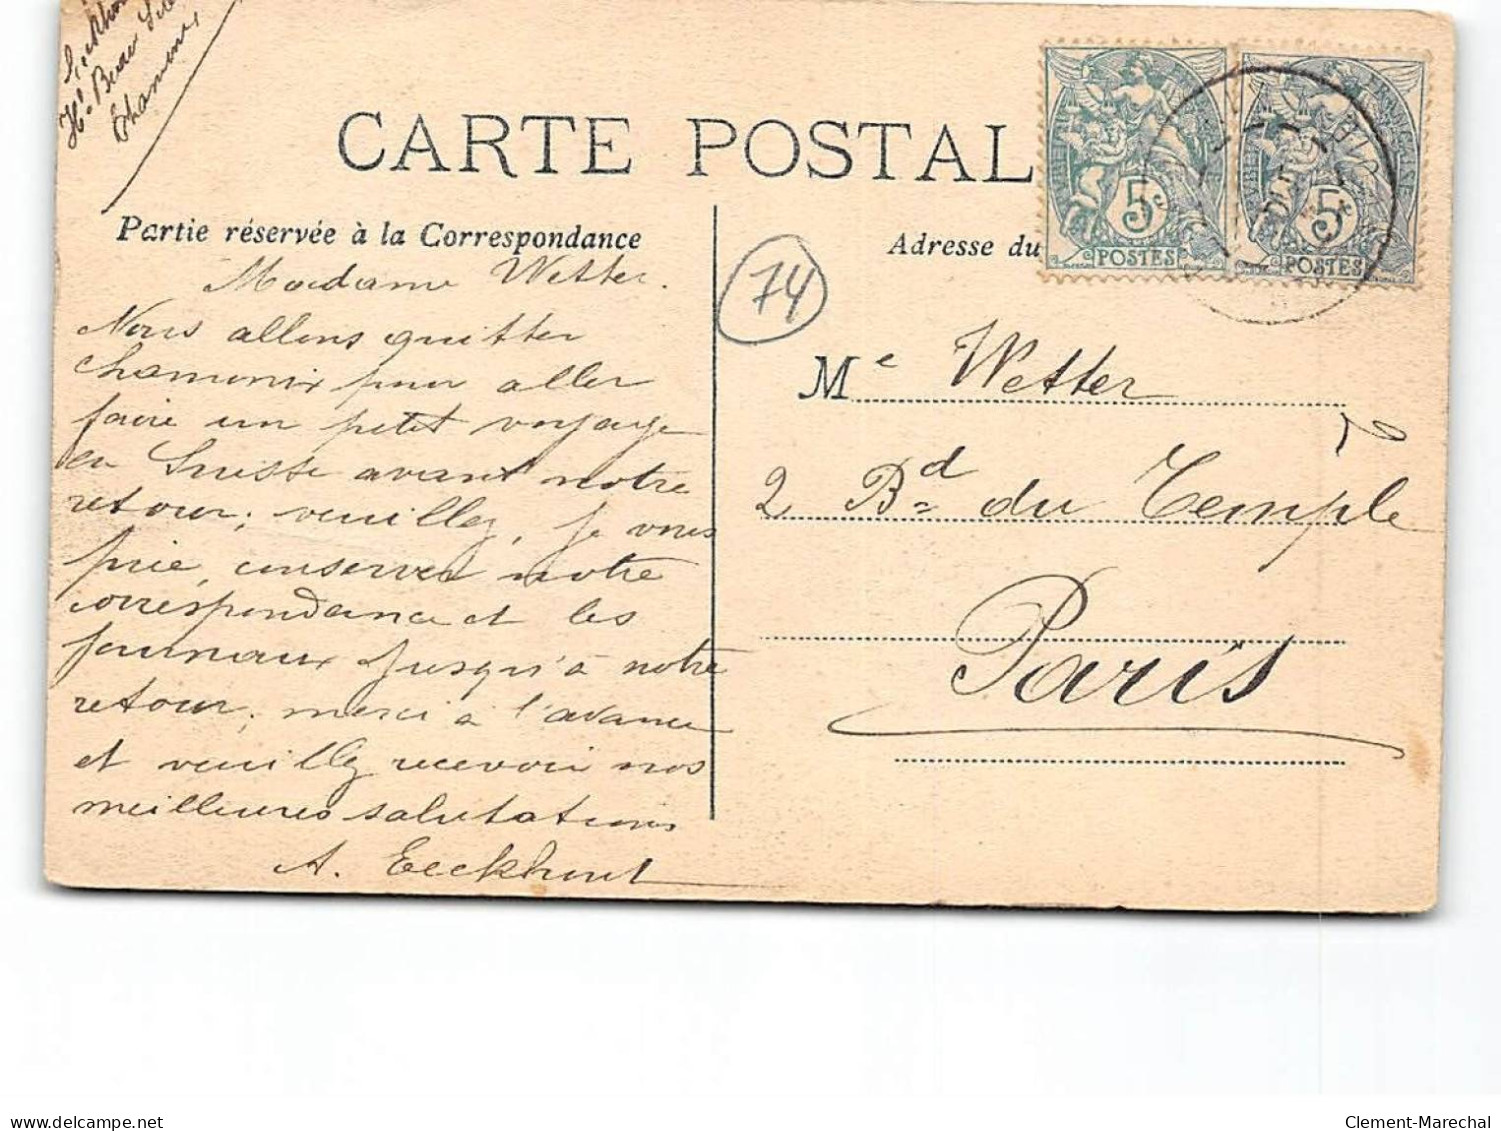 Eeckhout
H. Beau Site
Chamonix
CARTE POSTAL
Partie réservée à la Correspondance
Adresse du
Madame Wetter.
Nous allons quitter
chamonix pour aller
faire un petit voyage
en Suisse avant notre
retour; veuillez, je vous
prie, conserver notre
correspondance et les
journaux jusqu'à notre
retour; merci à l'avance
et veuillez recevoir nos
meilleures salutations
A. Eeckhout
5c
POSTES
5c
POSTES
74
Me Wetter
2 Bd du Temple
Paris
delcampe.net
Clement-Marechal